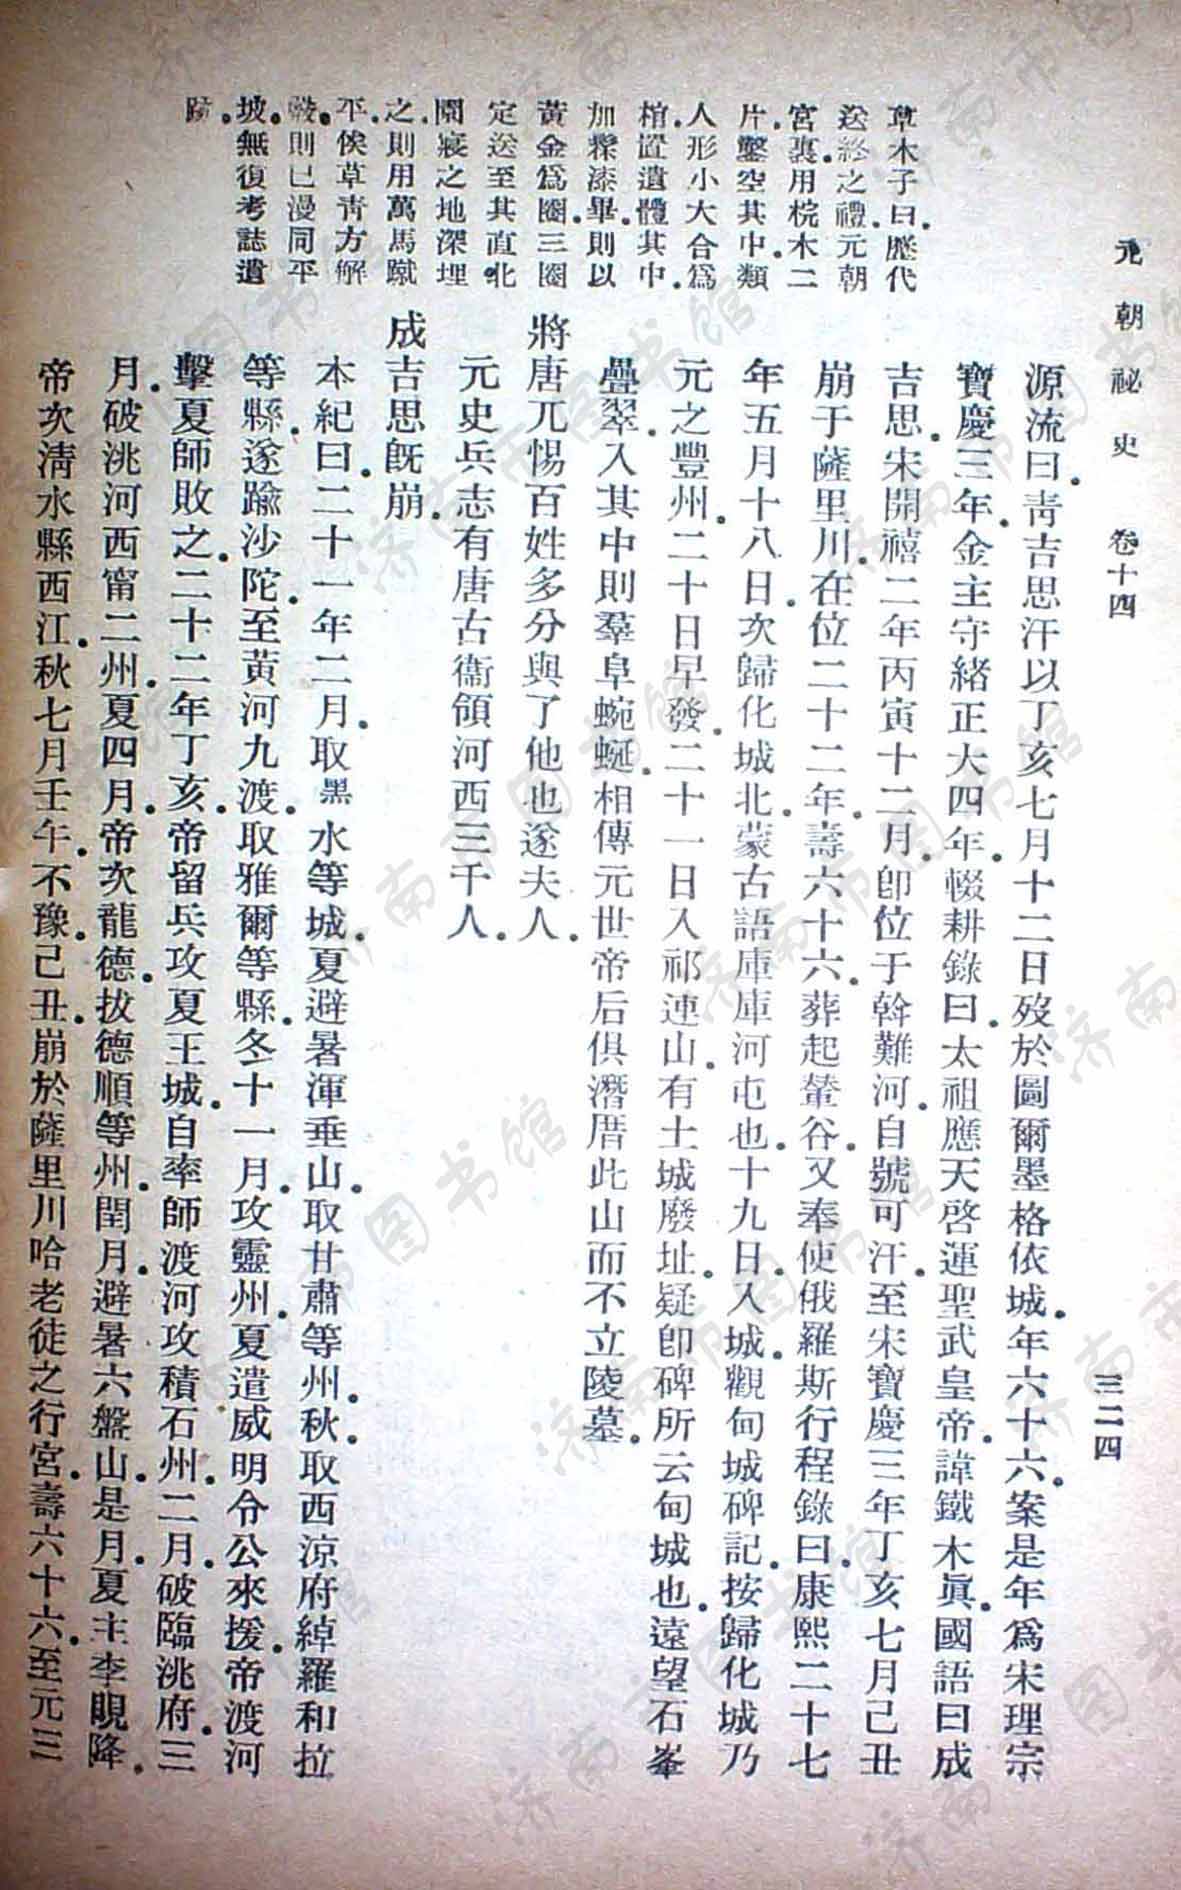 元朝祕史 卷十四 三二四
草木子曰歷代
送終之禮元朝
宮裏用梡木二
片鑿空其中類
人形小大合爲
棺置遺體其中
加髹漆畢則以
黃金爲圈三圈
定送至其直北
園寢之地深埋
之則用萬馬蹴
平俟草青方解
嚴則已漫同平
坡無復考誌遺
跡
源流曰靑吉思汗以丁亥七月十二日歿於圖爾墨格依城年六十六案是年爲宋理宗
寶慶三年金主守緒正大四年輟耕錄曰太祖應天啓運聖武皇帝諱鐵木眞國語曰成
吉思宋開禧二年丙寅十二月卽位于斡難河自號可汗至宋寶慶三年丁亥七月己丑
崩于薩里川在位二十二年壽六十六葬起輦谷又奉使俄羅斯行程錄曰康熙二十七
年五月十八日次歸化城北蒙古語庫庫河屯也十九日入城觀甸城碑記按歸化城乃
元之豐州二十日早發二十一日入祁連山有土城廢址疑卽碑所云甸城也遠望石峯
疊翠入其中則羣阜蜿蜒相傳元世帝后俱潛厝此山而不立陵墓
將唐兀惕百姓多分與了他也遂夫人
元史兵志有唐古衞領河西三千人
成吉思旣崩
本紀曰二十一年二月取黑水等城夏避暑渾垂山取甘肅等州秋取西涼府綽羅和拉
等縣遂踰沙陀至黃河九渡取雅爾等縣冬十一月攻靈州夏遣威明令公來援帝渡河
擊夏師敗之二十二年丁亥帝留兵攻夏王城自率師渡河攻積石州二月破臨洮府三
月破洮河西甯二州夏四月帝次龍德拔德順等州閏月避暑六盤山是月夏主李晛降
帝次淸水縣西江秋七月壬午不豫己丑崩於薩里川哈老徒之行宮壽六十六至元三